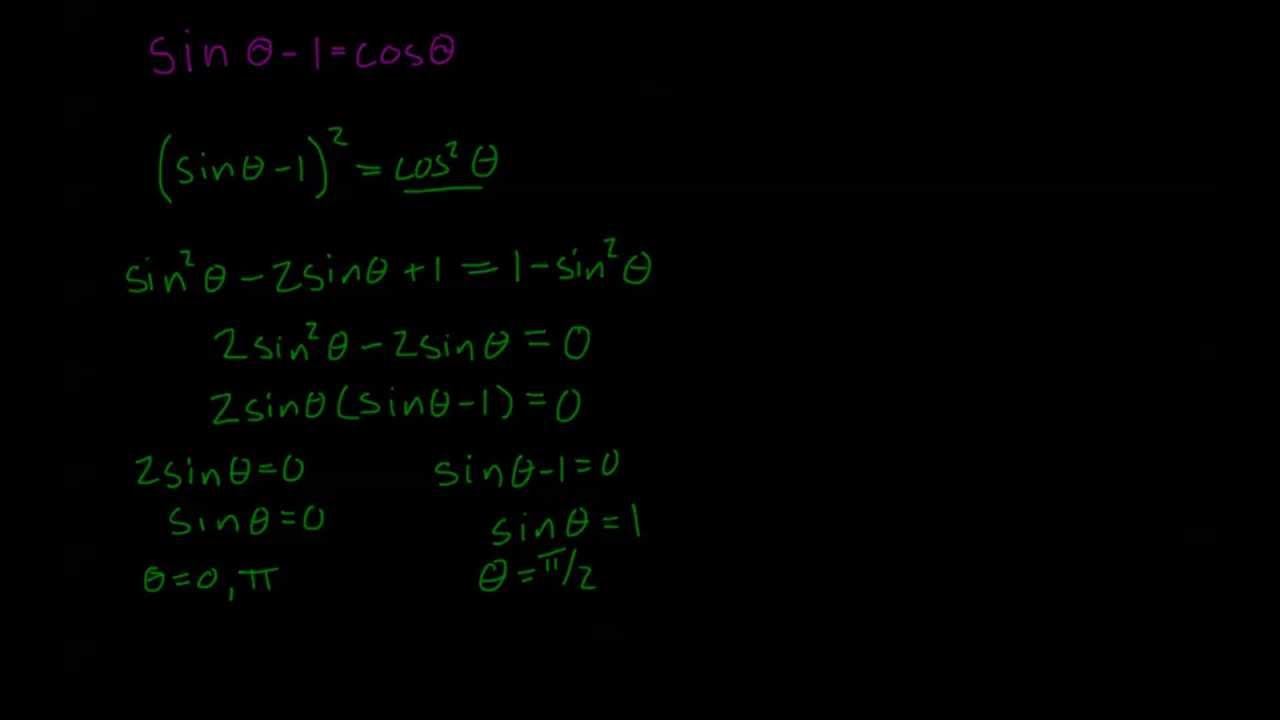 sin θ - 1 = cos θ
(sin θ - 1)² = cos² θ
sin² θ - 2 sin θ + 1 = 1 - sin² θ
2 sin² θ - 2 sin θ = 0
2 sin θ (sin θ - 1) = 0
2 sin θ = 0 sin θ - 1 = 0
sin θ = 0 sin θ = 1
θ = 0, π θ = π/2